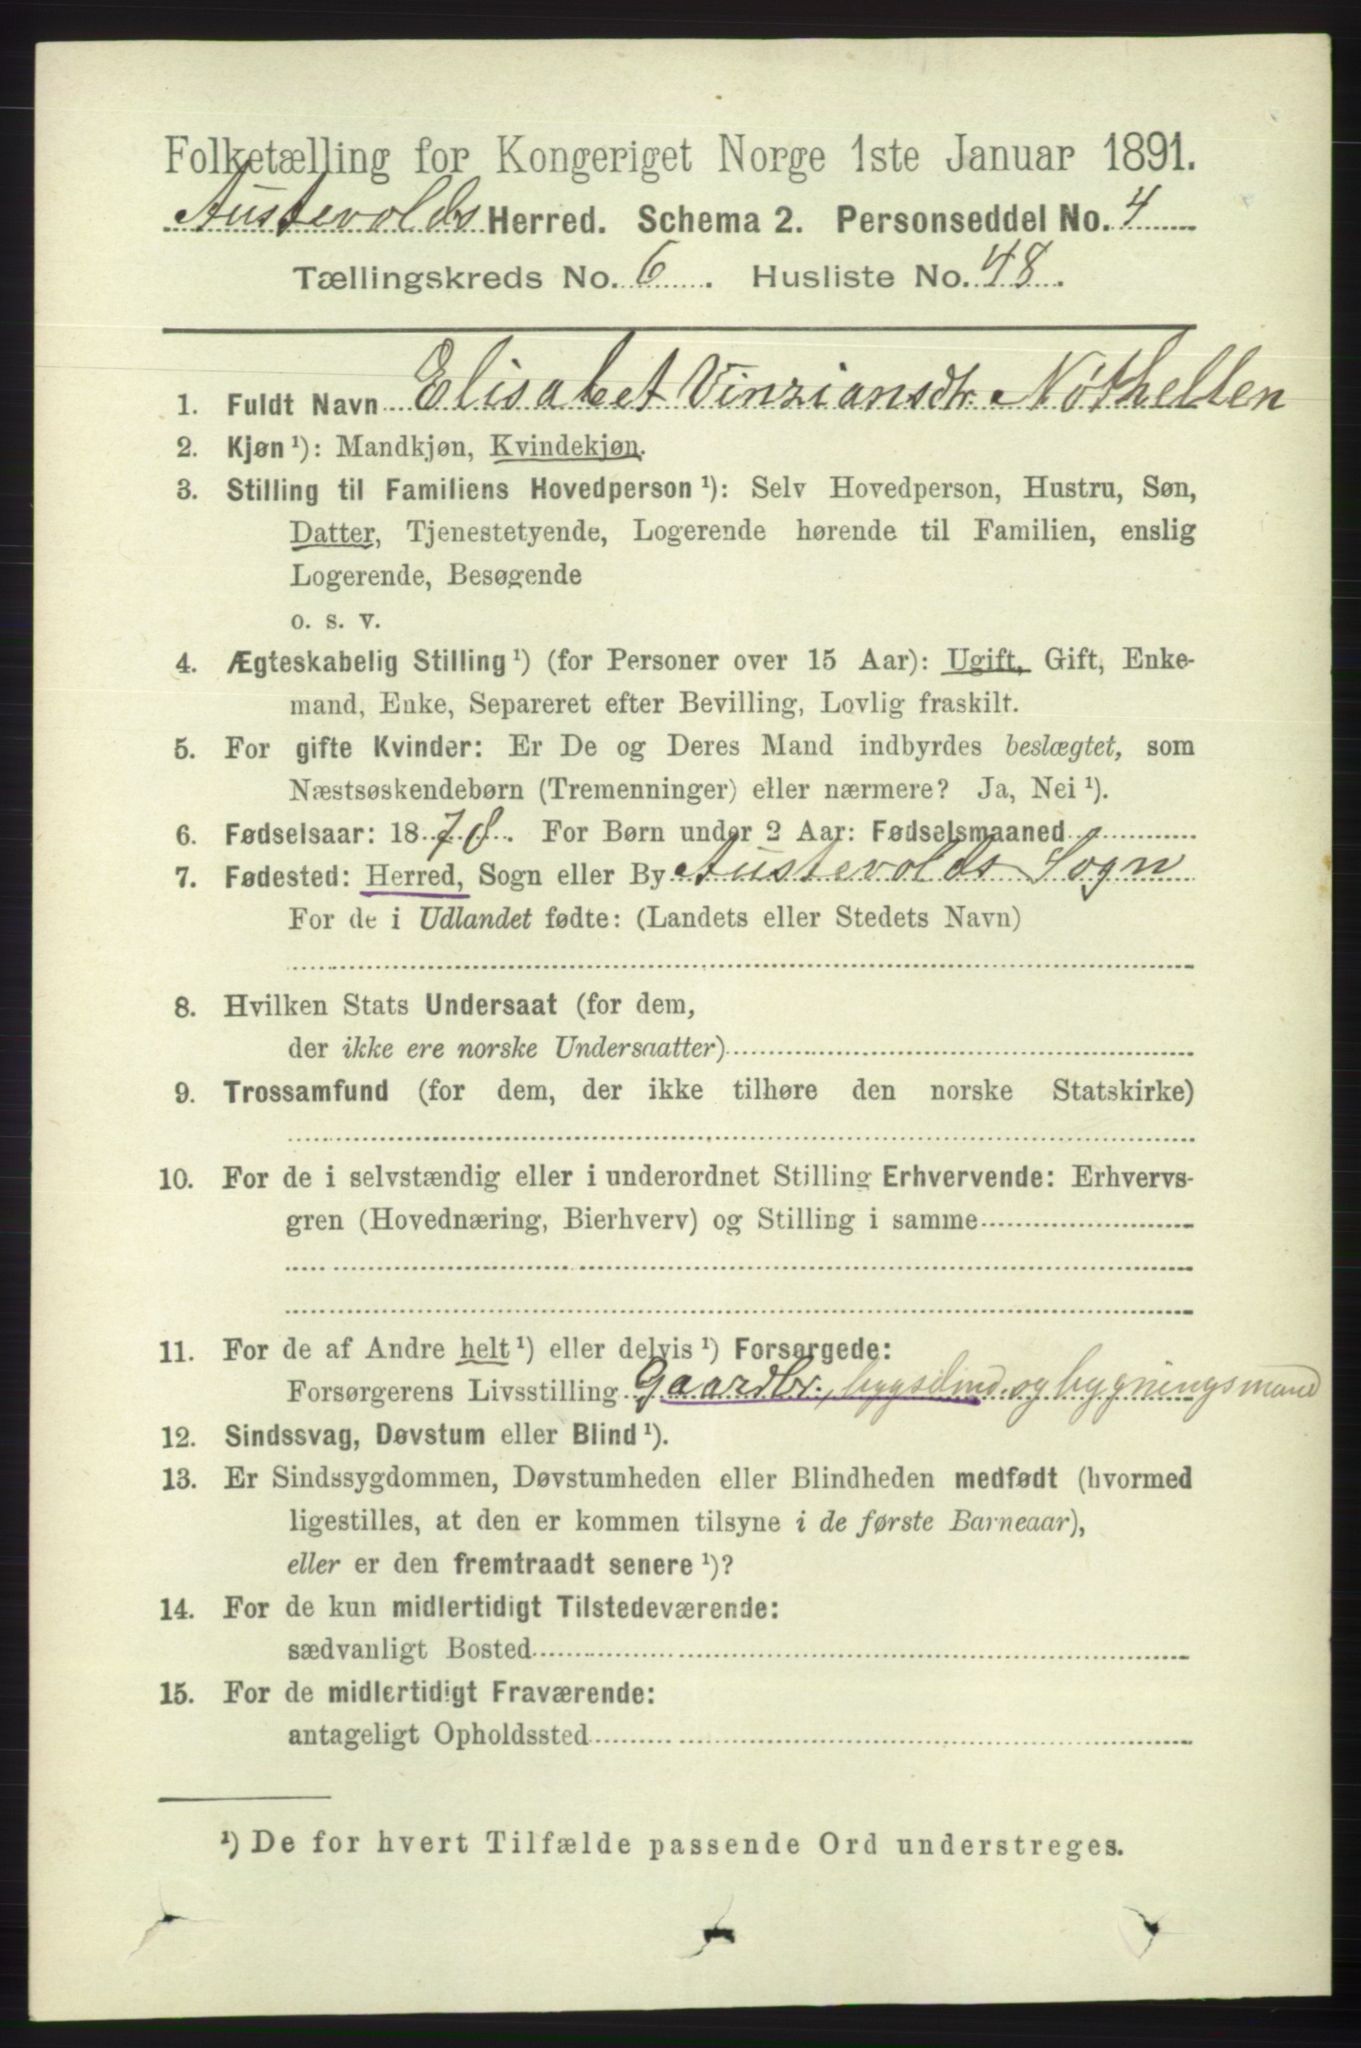 Folketælling for Kongeriget Norge 1ste Januar 1891.
Austevolds Herred. Schema 2. Personseddel No. 4
Tællingskreds No. 6. Husliste No. 48.
1. Fuldt Navn Elisabet Vinziansdtr. Nøthellen
2. Kjøn ¹): Mandkjøn, Kvindekjøn.
3. Stilling til Familiens Hovedperson ¹): Selv Hovedperson, Hustru, Søn,
Datter, Tjenestetyende, Logerende hørende til Familien, enslig
Logerende, Besøgende
o. s. v.
4. Ægteskabelig Stilling ¹) (for Personer over 15 Aar): Ugift, Gift, Enke-
mand, Enke, Separeret efter Bevilling, Lovlig fraskilt.
5. For gifte Kvinder: Er De og Deres Mand indbyrdes beslægtet, som
Næstsøskendebørn (Tremenninger) eller nærmere? Ja, Nei ¹).
6. Fødselsaar: 1878. For Børn under 2 Aar: Fødselsmaaned
7. Fødested: Herred, Sogn eller By Austevolds Sogn
For de i Udlandet fødte: (Landets eller Stedets Navn)
8. Hvilken Stats Undersaat (for dem,
der ikke ere norske Undersaatter)
9. Trossamfund (for dem, der ikke tilhøre den norske Statskirke)
10. For de i selvstændig eller i underordnet Stilling Erhvervende: Erhvervs-
gren (Hovednæring, Bierhverv) og Stilling i samme
11. For de af Andre helt ¹) eller delvis ¹) Forsørgede:
Forsørgerens Livsstilling Gaardbr., og bygningsmand
12. Sindssvag, Døvstum eller Blind ¹).
13. Er Sindssygdommen, Døvstumheden eller Blindheden medfødt (hvormed
ligestilles, at den er kommen tilsyne i de første Barneaar),
eller er den fremtraadt senere ¹)?
14. For de kun midlertidigt Tilstedeværende:
sædvanligt Bosted
15. For de midlertidigt Fraværende:
antageligt Opholdssted
¹) De for hvert Tilfælde passende Ord understreges.